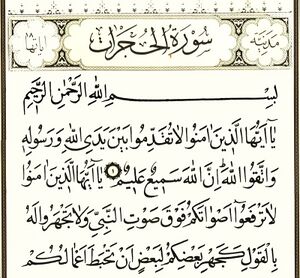 مدنية سورة الحجرات آياتها ١٨
بسم الله الرحمن الرحيم
يَا أَيُّهَا الَّذِينَ آمَنُوا لَا تُقَدِّمُوا بَيْنَ يَدَيِ اللَّهِ وَرَسُولِهِ
وَاتَّقُوا اللَّهَ إِنَّ اللَّهَ سَمِيعٌ عَلِيمٌ ١ يَا أَيُّهَا الَّذِينَ آمَنُوا
لَا تَرْفَعُوا أَصْوَاتَكُمْ فَوْقَ صَوْتِ النَّبِيِّ وَلَا تَجْهَرُوا لَهُ
بِالْقَوْلِ كَجَهْرِ بَعْضِكُمْ لِبَعْضٍ أَنْ تَحْبَطَ أَعْمَالُكُمْ